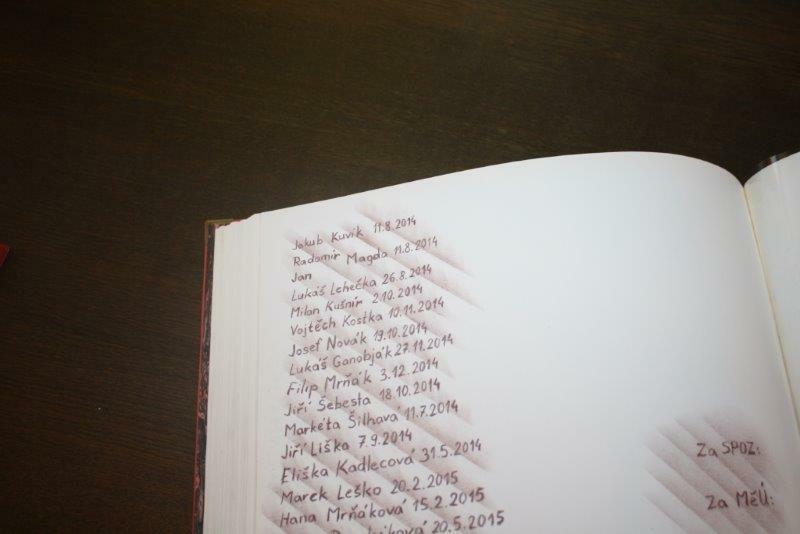 Jakub Kuvik 11.8.2014
Radomír Magda 11.8.2014
Jan
Lukáš Lehečka 26.8.2014
Milan Kušnír 2.10.2014
Vojtěch Kostka 10.11.2014
Josef Novák 19.10.2014
Lukáš Ganobják 27.11.2014
Filip Mrňák 3.12.2014
Jiří Šebesta 18.10.2014
Markéta Šilhavá 11.7.2014
Jiří Liška 7.9.2014
Eliška Kadlecová 31.5.2014
Marek Leško 20.2.2015
Hana Mrňáková 15.2.2015
20.5.2015
Za SPOZ:
Za MěÚ: